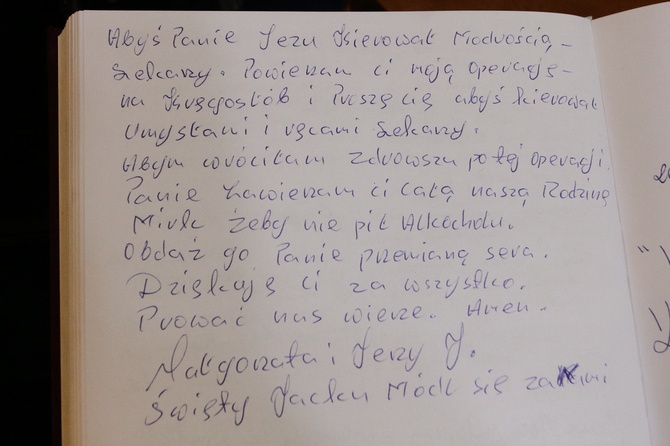 Abyś Panie Jezu Kierował Mądrością -
Lekarzy. Powierzam ci moją operację -
na Kręgosłób i Proszę cię abyś kierował
Umysłami i rękami Lekarzy.
Abym wróciłam zdrowsza po tej operacji.
Panie Zawierzam ci całą naszą Rodzinę
żeby nie pił Alkocholu.
Obdaż go Panie przemianą serca.
Dziękuję ci za wszystko.
Prować nas wierze. Amen.
Małgorzata i Jerzy J.
Święty Jacku Módl się za